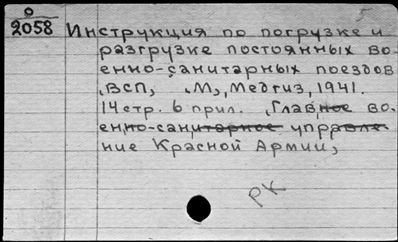 5
0
2058 Инструкция по погрузке и
разгрузке постоянных во-
енно-санитарных поездов
ВСП, М, Медгиз, 1941.
14 стр. 6 прил. Главное во-
енно-санитарное управле-
ние Красной Армии,
РК